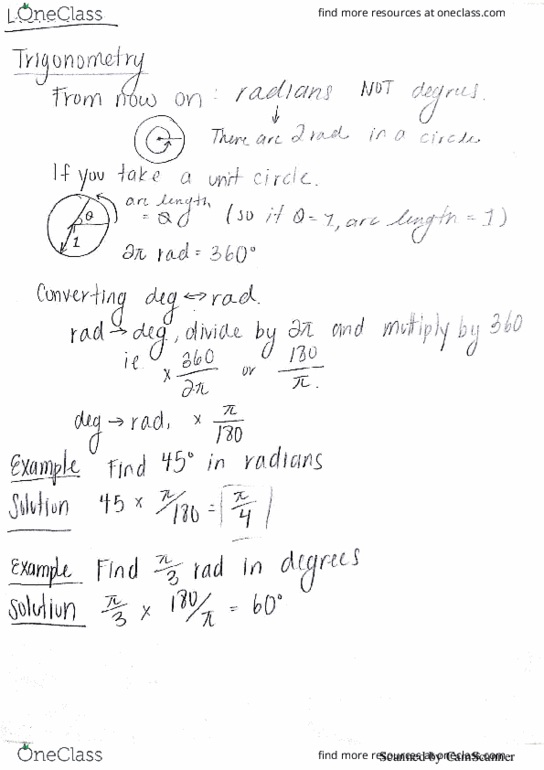 L
OneClass
find more resources at oneclass.com
Trigonometry
From now on: radians NOT degrees.
There are 2 rad in a circle
If you take a unit circle.
θ
1
arc length
= θ
(so if θ=1, arc length = 1)
2π rad = 360°
Converting deg ↔ rad.
rad → deg, divide by 2π and multiply by 360
ie × 360/2π or 180/π.
deg → rad, × π/180
Example Find 45° in radians
Solution 45 × π/180 = π/4
Example Find π/3 rad in degrees
Solution π/3 × 180/π = 60°
OneClass
find more resources at oneclass.com
Scanned by CamScanner